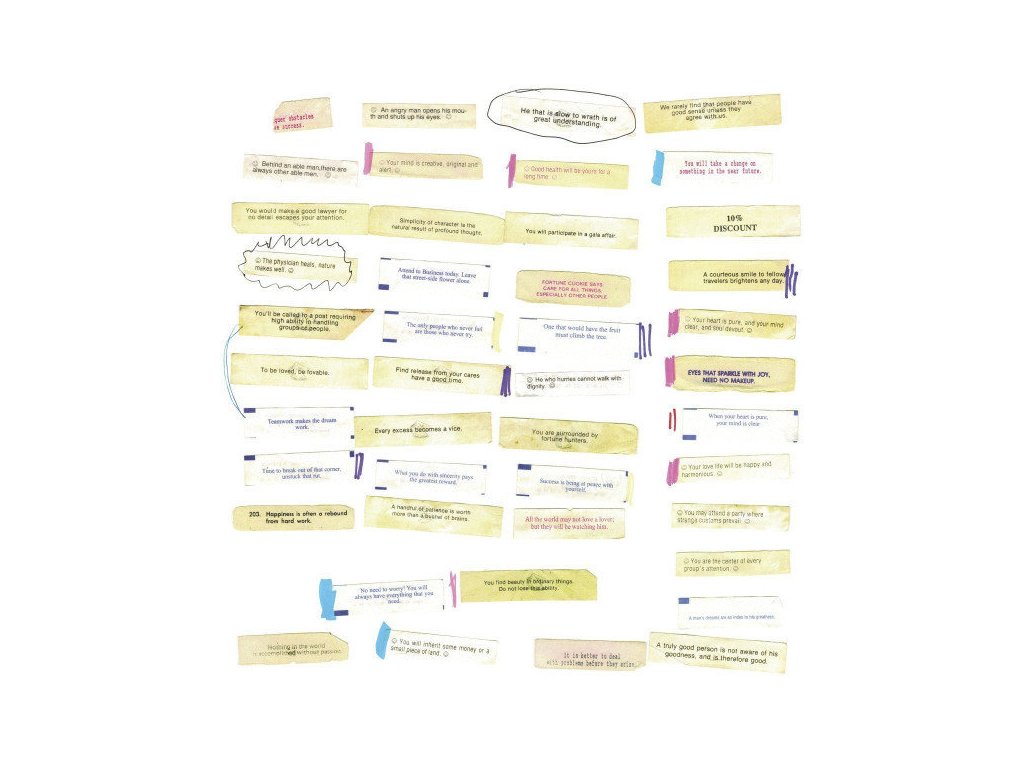 quer obstacles
e success.
An angry man opens his mou-
th and shuts up his eyes.
He that is slow to wrath is of
great understanding.
We rarely find that people have
good sense unless they
agree with us.
Behind an able man, there are
always other able men.
Your mind is creative, original and
alert.
Good health will be yours for a
long time.
You will take a change on
something in the near future.
You would make a good lawyer for
no detail escapes your attention.
Simplicity of character is the
natural result of profound thought.
You will participate in a gala affair.
10%
DISCOUNT
The physician heals, nature
makes well.
Attend to Business today. Leave
that street-side flower alone.
FORTUNE COOKIE SAYS
CARE FOR ALL THINGS,
ESPECIALLY OTHER PEOPLE
A courteous smile to fellow
travelers brightens any day.
You'll be called to a post requiring
high ability in handling
groups of people.
The only people who never fail
are those who never try.
One that would have the fruit
must climb the tree.
Your heart is pure, and your mind
clear, and soul devout.
To be loved, be lovable.
Find release from your cares
have a good time.
He who hurries cannot walk with
dignity.
EYES THAT SPARKLE WITH JOY,
NEED NO MAKEUP.
Teamwork makes the dream
work.
Every excess becomes a vice.
You are surrounded by
fortune hunters.
When your heart is pure,
your mind is clear
Time to break out of that corner,
unstuck that rut.
What you do with sincerity pays
the greatest reward.
Success is being at peace with
yourself.
Your love life will be happy and
harmonious.
203. Happiness is often a rebound
from hard work.
A handful of patience is worth
more than a bushel of brains.
All the world may not love a lover,
but they will be watching him.
You may attend a party where
strange customs prevail.
You are the center of every
group's attention.
No need to worry! You will
always have everything that you
need.
You find beauty in ordinary things.
Do not lose this ability.
A man's dreams are an index to his greatness.
Nothing in the world
is accomplished without passion.
You will inherit some money or a
small piece of land.
It is better to deal
with problems before they arise.
A truly good person is not aware of his
goodness, and is therefore good.